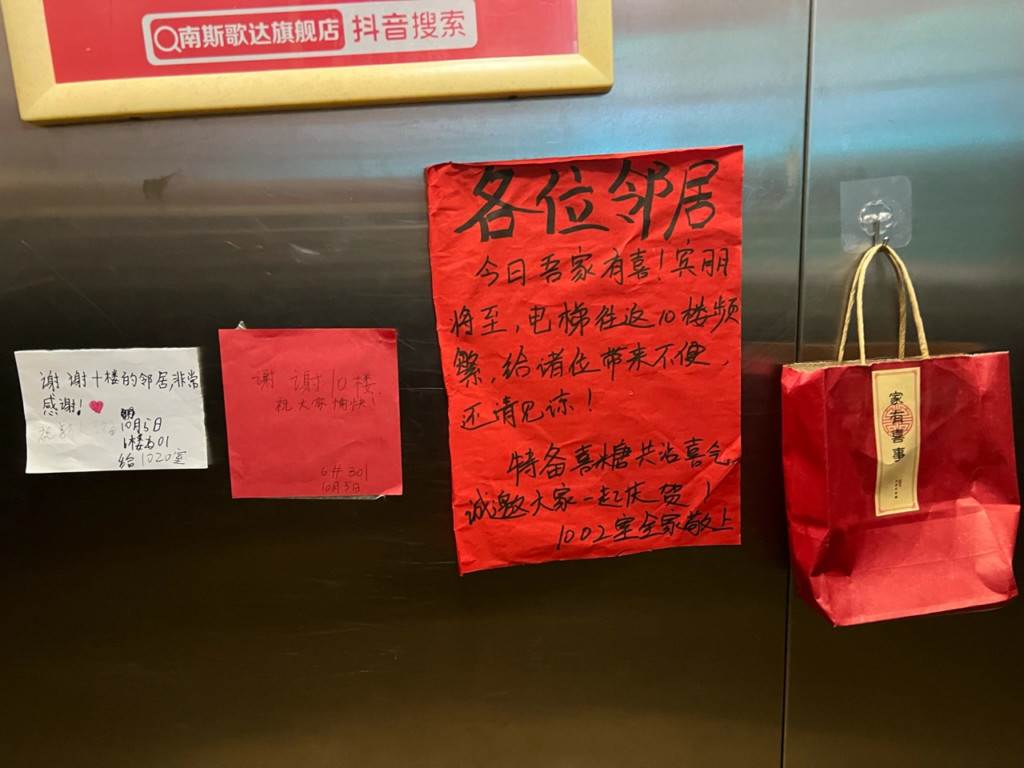 南斯歌达旗舰店 抖音搜索
各位邻居
今日吾家有喜!宾朋
将至,电梯往返10楼频
繁,给诸位带来不便,
还请见谅!
特备喜糖共沾喜气。
诚邀大家一起庆贺!
1002室全家敬上
谢谢十楼的邻居非常
感谢!
10月5日
01
给1020室
谢 谢10楼,
祝大家愉快!
6# 301
10月5日
家有喜事